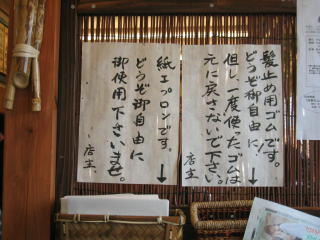 髪止め用ゴムです。
どうぞ御自由に!
但し、一度使ったゴムは
元に戻さないで下さい。
店主
紙エプロンです。
どうぞ御自由に
御使用下さいませ。
店主